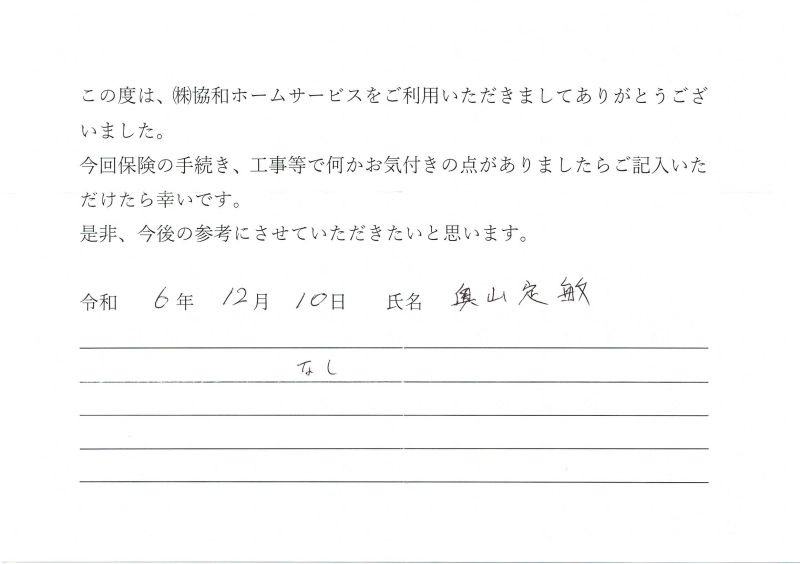 この度は、㈱協和ホームサービスをご利用いただきましてありがとうござ
いました。
今回保険の手続き、工事等で何かお気付きの点がありましたらご記入いた
だけたら幸いです。
是非、今後の参考にさせていただきたいと思います。
令和 6年 12月 10日 氏名 奥山定敏
なし